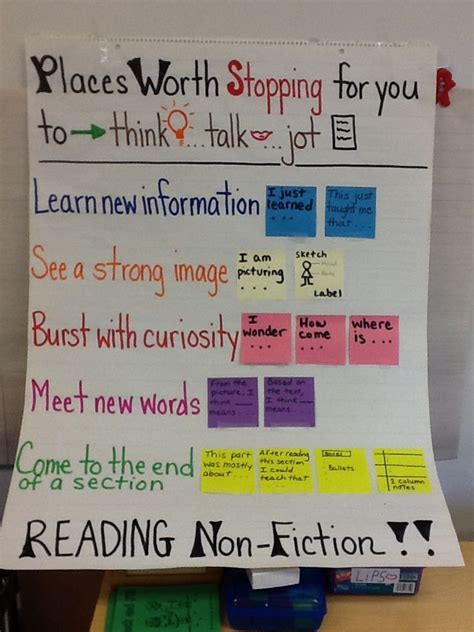 Places Worth Stopping for you
to → think ... talk ... jot
Learn new information
I just
learned
. . .
This just
taught me
that . . .
See a strong image
I am
picturing
. . .
sketch
Label
Burst with curiosity
I
wonder
. . .
How
come
. . .
where
is . . .
Meet new words
From the
picture, I
think ___
means . . .
Based on
the text,
I think ___
means...
Come to the end
of a section
This part
was mostly
about...
After reading
this section
I could
teach that
...
Bullets
2 column
notes
READING Non-Fiction !!
LiPS